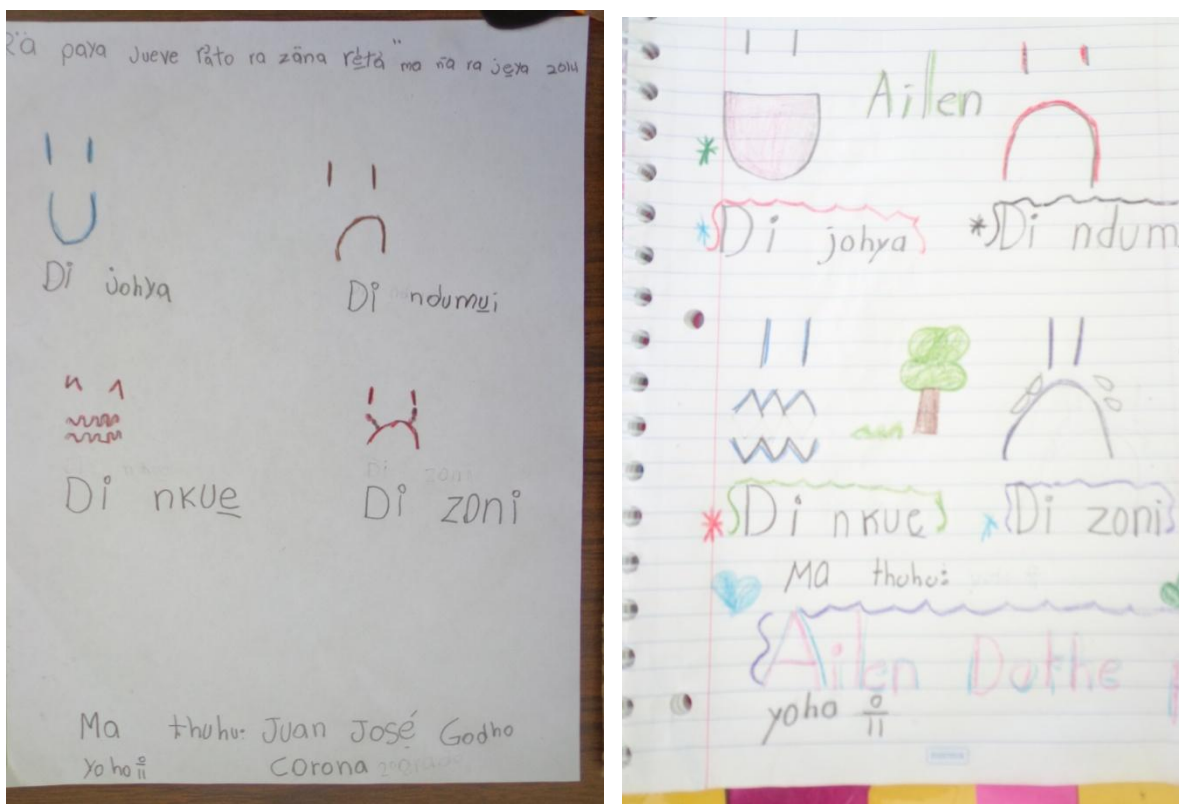 paya Jueve ra zäna ma ra jeya 2014
Di johya
Di ndumu̲i
Di nkue̲
Di zoni
Ma thuhu: Juan José Godho
Yoho º
Corona
Ailen
Di johya
Di ndum
Di nkue̲
Di zoni
Ma thuhu:
Ailen Dathe
yoho º